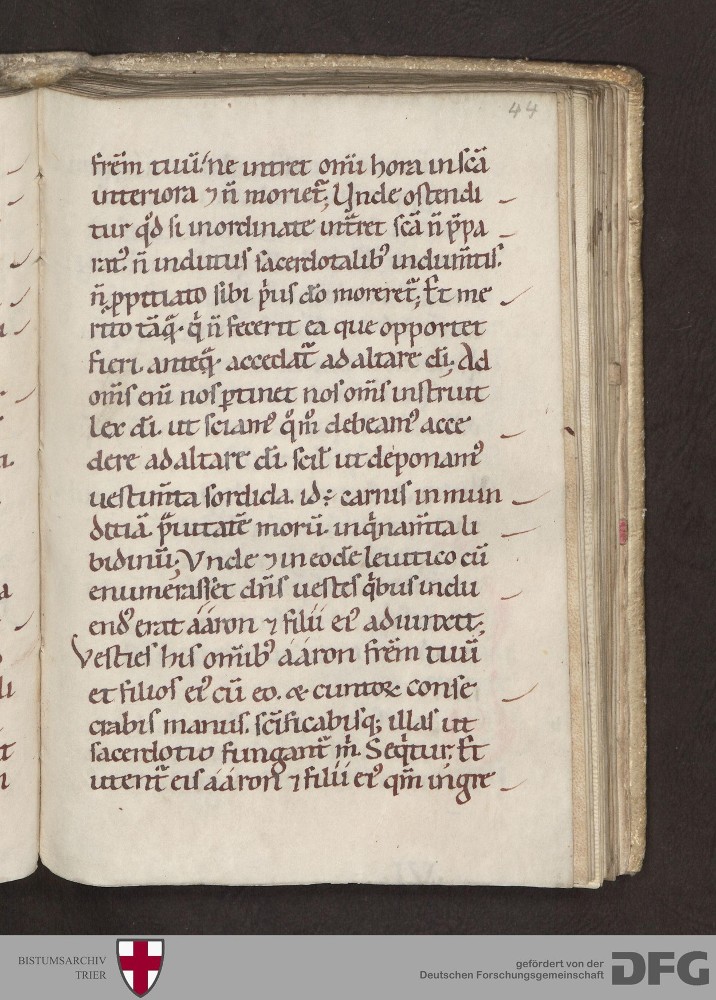 44
frēm tuū. ne intret om̄i hora in scā
interiora ⁊ n̄ moriet᷑; Unde ostendi
tur qd̓ si inordinate intret᷑ scā n̄ p̄pa
rat᷒. n̄ indutus sacerdotalib᷒ indum̄tis.
n̄ ꝓpitiato sibi p̓us dō moreret᷑; Et me
rito tāq̄. q̓ n̄ fecerit ea que opportet
fieri. anteq̄. accedat᷑ ad altare dī. Ad
om̄s enī nos ꝑtinet nos om̄s instruit
lex dī. ut sciam᷒ qᵒm̊ debeam᷒ acce
dere ad altare dī. scil̄ ut deponam᷒
uestim̄ta sordida. id ÷ carnis in mun
ditiā. p̄uitatē morū. inq̓nam̄ta li
bidinū; Vnde ⁊ in eodē leuitico cū
enumerasset dn̄s uestes q̓bus indu
end᷒ erat ááron ⁊ filii ei᷒ adiunxit;
Vesties his om̄ib᷒ ááron frēm tuū
et filios ei᷒ cū eo. & cunctoꝝ conse
crabis manus. sc̄ificabisq; illas ut
sacerdotio fungant᷑ m̓. Seq̓tur; Et
utent᷑ eis ááron ⁊ filii ei᷒ qn̄ ingre
BISTUMSARCHIV
TRIER
gefördert von der
Deutschen Forschungsgemeinschaft
DFG